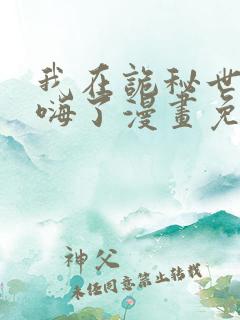 我在詭秘世
嗨了漫畫免
神父
未经同意禁止转载